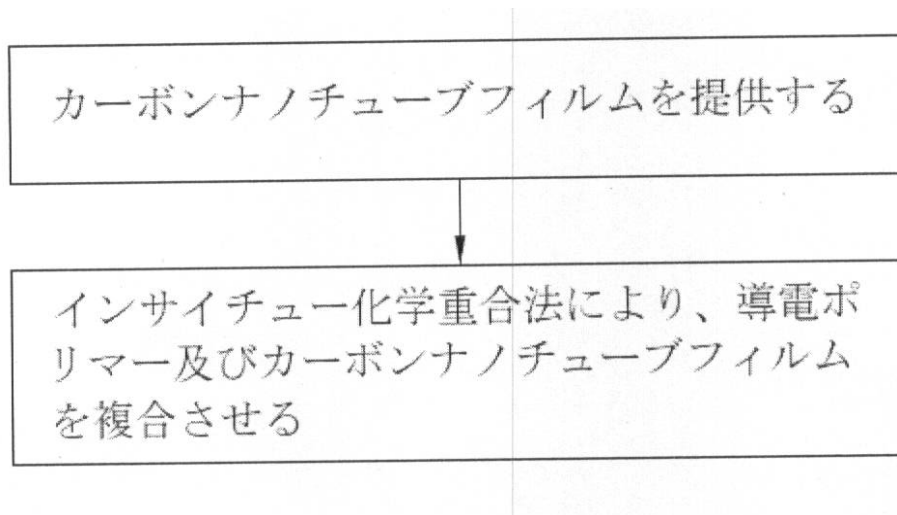 カーボンナノチューブフィルムを提供する
インサイチュー化学重合法により、導電ポ
リマー及びカーボンナノチューブフィルム
を複合させる